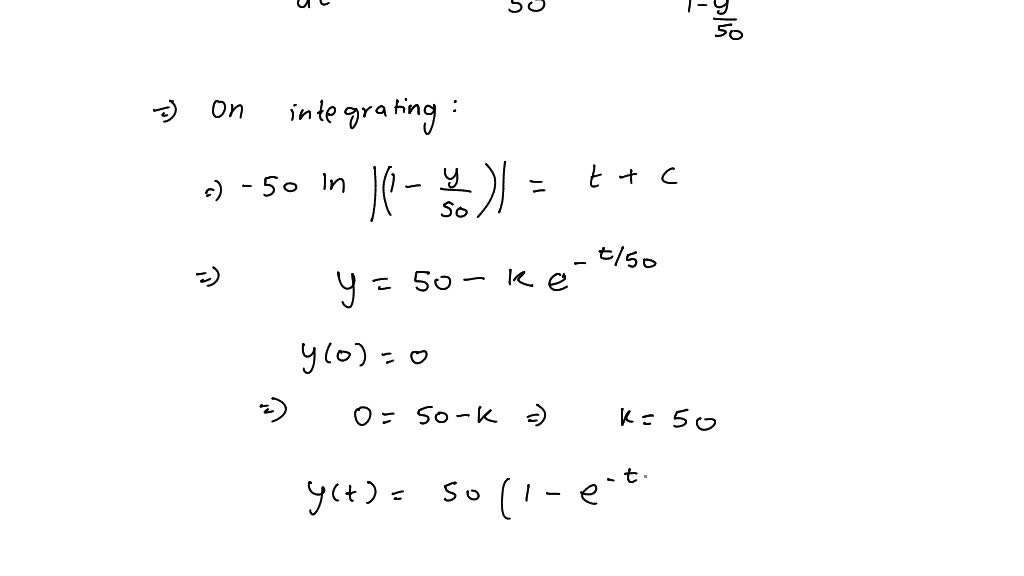 50 1-y/50
=) On integrating:
=) -50 ln |(1 - y/50)| = t + c
=) y = 50 - k e^{-t/50}
y(0) = 0
=) 0 = 50 - k =) k = 50
y(t) = 50 (1 - e^{-t